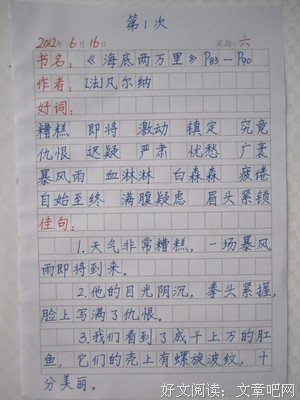 第1次
2012年6月16日 星期:六
书名:《海底两万里》P83—P90
作者:[法]凡尔纳
好词:
糟糕 即将 激动 镇定 究竟
仇恨 迟疑 严肃 忧愁 广袤
暴风雨 血淋淋 白森森 疲倦
自始至终 满腹疑虑 眉头紧锁
佳句:
1.天气非常糟糕,一场暴风
雨即将到来。
2.他的目光阴沉,拳头紧握,
脸上写满了仇恨。
3.我们看到了成千上万的魟
鱼,它们的壳上有螺旋波纹,十
分美丽。
好文阅读:文章吧网